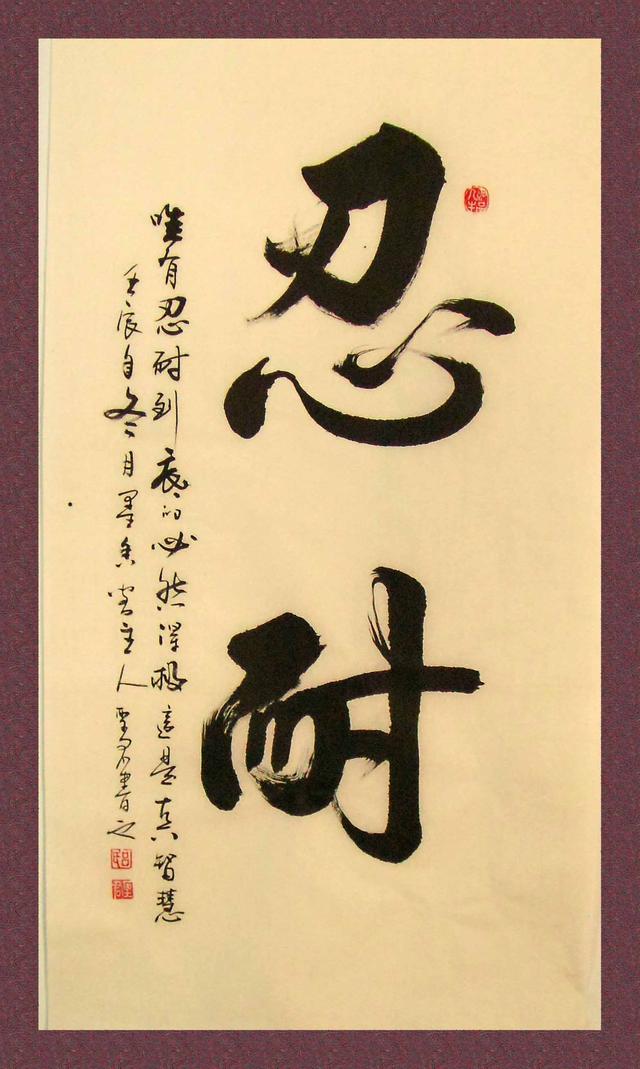 忍耐
唯有忍耐到底的必然得救這是真智慧
壬辰年冬月墨香主人聖君書之